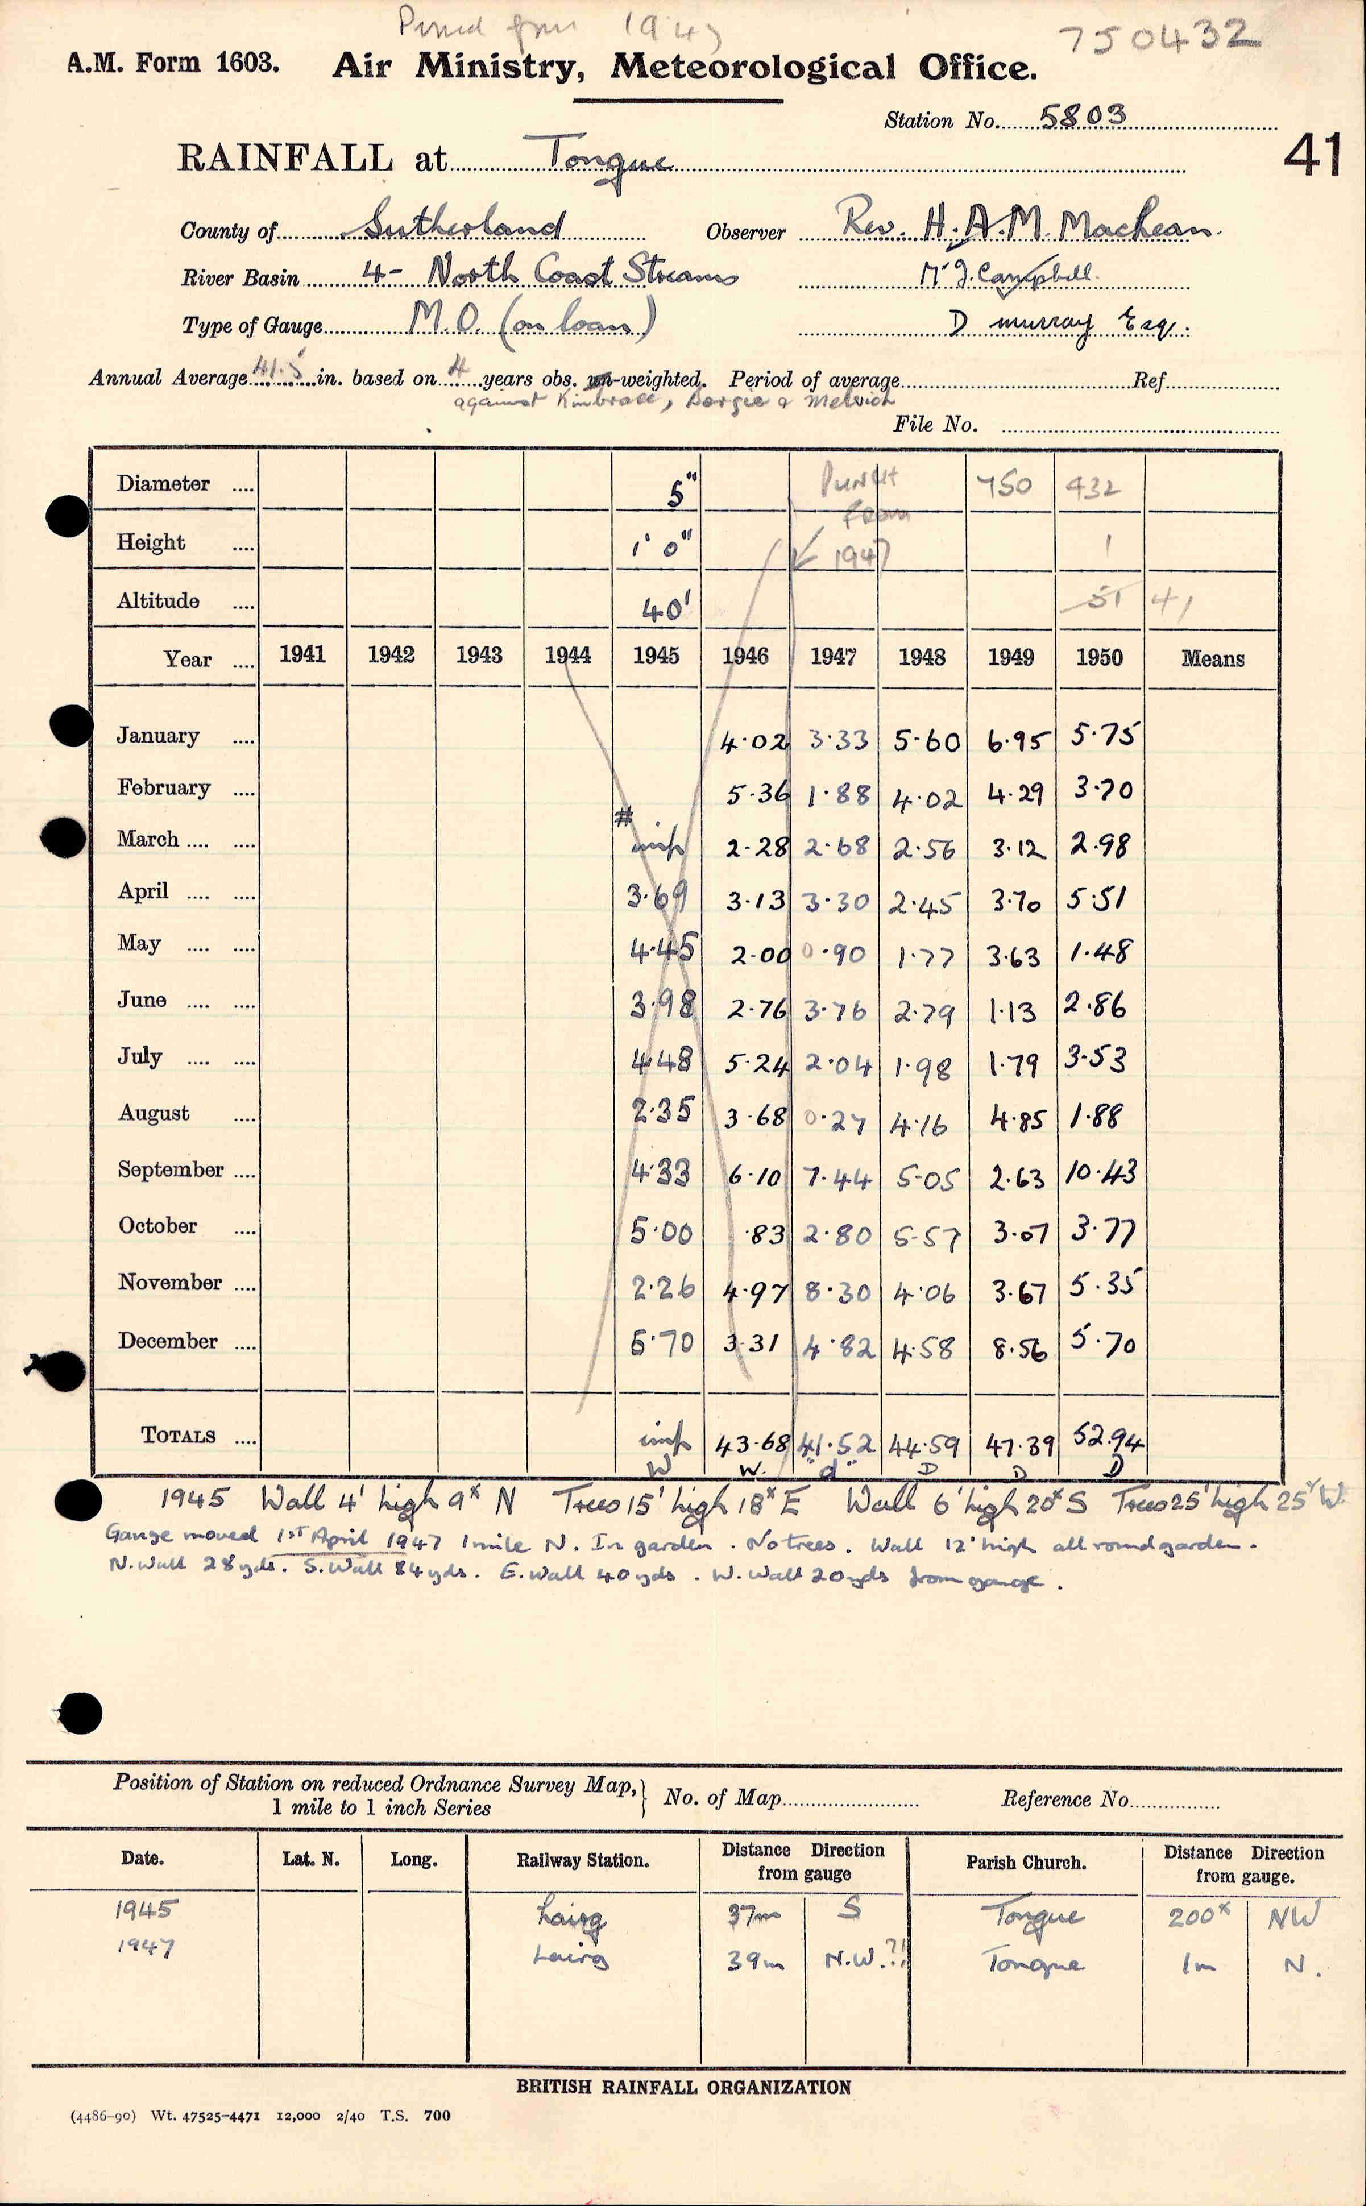 Punch from 1947
750432
A.M. Form 1603. Air Ministry, Meteorological Office.
Station No. 5803
41
RAINFALL at Tongue
County of Sutherland Observer Rev. H.A.M. MacLean.
River Basin 4- North Coast Streams Mr J. Campbell.
Type of Gauge M.O. (on loan) D Murray Esq.
Annual Average 41.5 in. based on 4 years obs. un-weighted. Period of average Ref
against Kinbrace, Borgie & Melvich
File No.
Diameter .... 5" Punch 750 432
Height .... 1' 0" from 1947 1
Altitude .... 40' 51 41
Year .... 1941 1942 1943 1944 1945 1946 1947 1948 1949 1950 Means
January .... 4.02 3.33 5.60 6.95 5.75
February .... 5.36 1.88 4.02 4.29 3.70
#
March .... .... imp 2.28 2.68 2.56 3.12 2.98
April .... .... 3.69 3.13 3.30 2.45 3.70 5.51
May .... .... 4.45 2.00 0.90 1.77 3.63 1.48
June .... .... 3.98 2.76 3.76 2.79 1.13 2.86
July .... .... 4.48 5.24 2.04 1.98 1.79 3.53
August .... 2.35 3.68 0.27 4.16 4.85 1.88
September .... 4.33 6.10 7.44 5.05 2.63 10.43
October .... 5.00 .83 2.80 5.57 3.07 3.77
November .... 2.26 4.97 8.30 4.06 3.67 5.35
December .... 5.70 3.31 4.82 4.58 8.56 5.70
TOTALS .... imp 43.68 41.52 44.59 47.39 52.94
W W. "d" D D D
1945 Wall 4' high 9x N Trees 15' high 18x E Wall 6' high 20x S Trees 25' high 25x W.
Gauge moved 1st April 1947 1 mile N. In garden. No trees. Wall 12' high all round garden.
N. Wall 28 yds. S. Wall 84 yds. E. Wall 40 yds. W. Wall 20 yds from gauge.
Position of Station on reduced Ordnance Survey Map, } No. of Map Reference No.
1 mile to 1 inch Series
Date. Lat. N. Long. Railway Station. Distance Direction from gauge Parish Church. Distance Direction from gauge.
1945 Lairg 37m S Tongue 200x NW
1947 Lairg 39m N.W.?! Tongue 1m N.
BRITISH RAINFALL ORGANIZATION
(4486-90) Wt. 47525-4471 12,000 2/40 T.S. 700